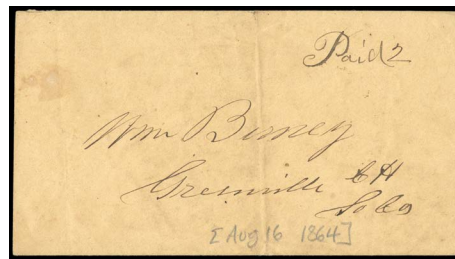 Paid 2
Wm Birney
Greenville C H
So Ca
[Aug 16 1864]